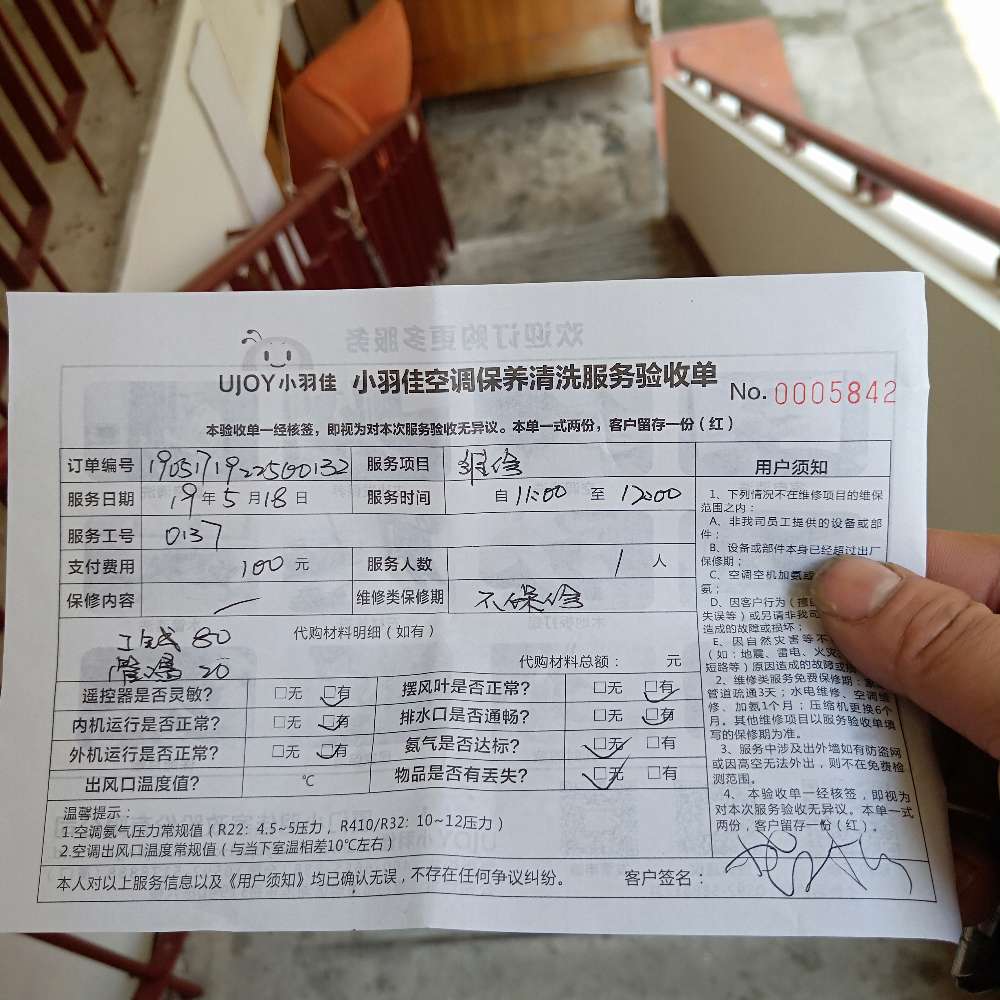 UJOY小羽佳 小羽佳空调保养清洗服务验收单 No. 0005842
本验收单一经核签，即视为对本次服务验收无异议。本单一式两份，客户留存一份（红）
订单编号 1905171922500132 服务项目 维修
服务日期 19年5月18日 服务时间 自11:00至12:00
服务工号 0137
支付费用 100元 服务人数 1人
保修内容 维修类保修期 不保修
80 代购材料明细（如有）
20 代购材料总额： 元
遥控器是否灵敏？ □无 □有 摆风叶是否正常？ □无 □有
内机运行是否正常？ □无 □有 排水口是否通畅？ □无 □有
外机运行是否正常？ □无 □有 氨气是否达标？ □无 □有
出风口温度值？ ℃ 物品是否有丢失？ □无 □有
温馨提示：
1.空调氨气压力常规值（R22: 4.5~5压力， R410/R32: 10~12压力）
2.空调出风口温度常规值（与当下室温相差10℃左右）
本人对以上服务信息以及《用户须知》均已确认无误，不存在任何争议纠纷。 客户签名：
用户须知
1、下列情况不在维修项目的维保
范围之内：
A、非我司员工提供的设备或部
件；
B、设备或部件本身已经超过出厂
保修期；
C、空调空机加氨或
氨；
D、因客户行为（擅自
失误等）或另请非我司
造成的故障或损坏；
E、因自然灾害等不
（如：地震、雷电、火灾
短路等）原因造成的故障或
2、维修类服务免费保修期：
管道疏通3天；水电维修、空调维
修、加氨1个月；压缩机更换6个
月。其他维修项目以服务验收单填
写的保修期为准。
3、服务中涉及出外墙如有防盗网
或因高空无法外出，则不在免费检
测范围。
4、本验收单一经核签，即视为
对本次服务验收无异议。本单一式
两份，客户留存一份（红）。